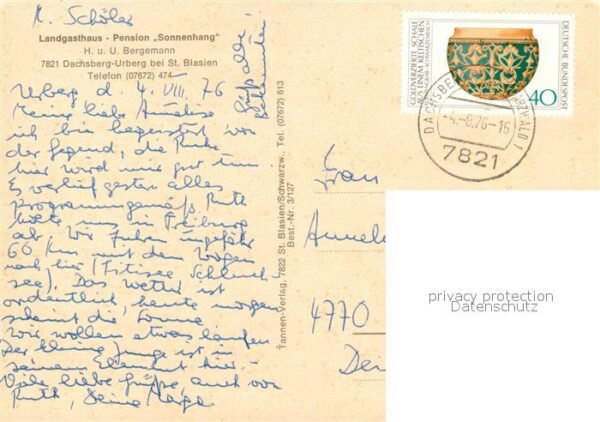 K. Schöler
Landgasthaus - Pension „Sonnenhang"
H. u. U. Bergemann
7821 Dachsberg-Urberg bei St. Blasien
Telefon (07672) 474
Urberg d. 4. VIII. 76
Meine liebe
ich bin begeistert von
der Gegend, die Ruhe
hier wird mir gut tun
Es verlief gestern alles
programmgemäß, Ruth
holte uns in Freiburg
ab. Wir fuhren ungefähr
60 Km mit dem Wagen
nach hier (Titisee Schluch
see). Das Wetter ist
ordentlich, heute morgen
scheint die Sonne
wir wollen etwas laufen
Der kleine Junge ist in
seinem Element hier.
Viele liebe Grüße, auch von
Ruth, Deine
Grüß alle
Bekannten
Tannen-Verlag, 7822 St. Blasien/Schwarzw., Tel. (07672) 613
Best.-Nr. 3/127
GOLDVERZIERTE SCHALE
AUS EINEM KELTISCHEN
SCHWARZENBACH
DEUTSCHE BUNDESPOST
40
DACHSBE RZWALD 1
-4.-8.76-16
7821
Frau
Annel
4770
Dei
privacy protection
Datenschutz